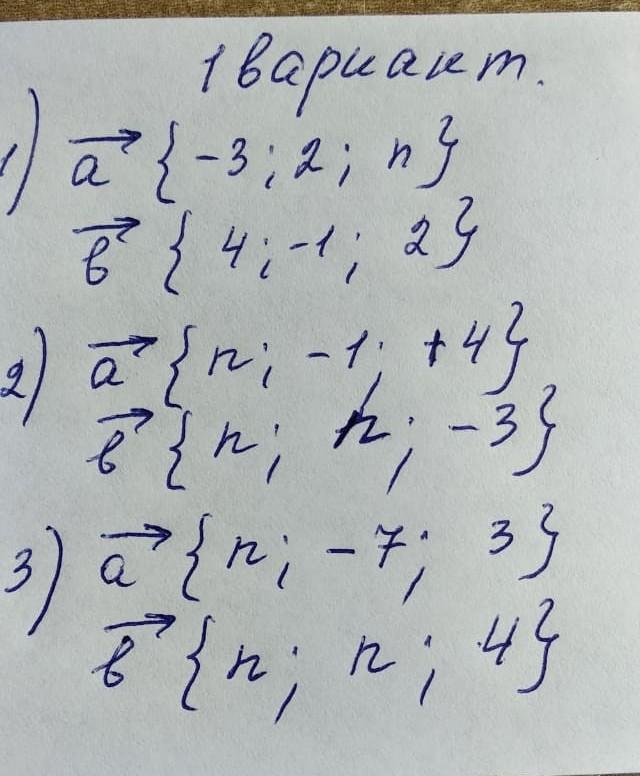 1 вариант.
1) a→ {-3; 2; n}
b→ {4; -1; 2}
2) a→ {n; -1; +4}
b→ {n; n; -3}
3) a→ {n; -7; 3}
b→ {n; n; 4}